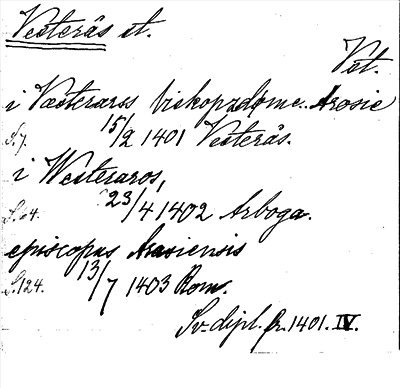 Vesterås st.
Vst.
i Væsterarss biskopzdøme. Arosie
S.7. 15/2 1401 Vesterås.
i Westeraros,
S.64. 23/4 1402 Arboga.
episcopus Arosiensis
S.124. 13/7 1403 Rom.
Sv. dipl. fr. 1401. IV.